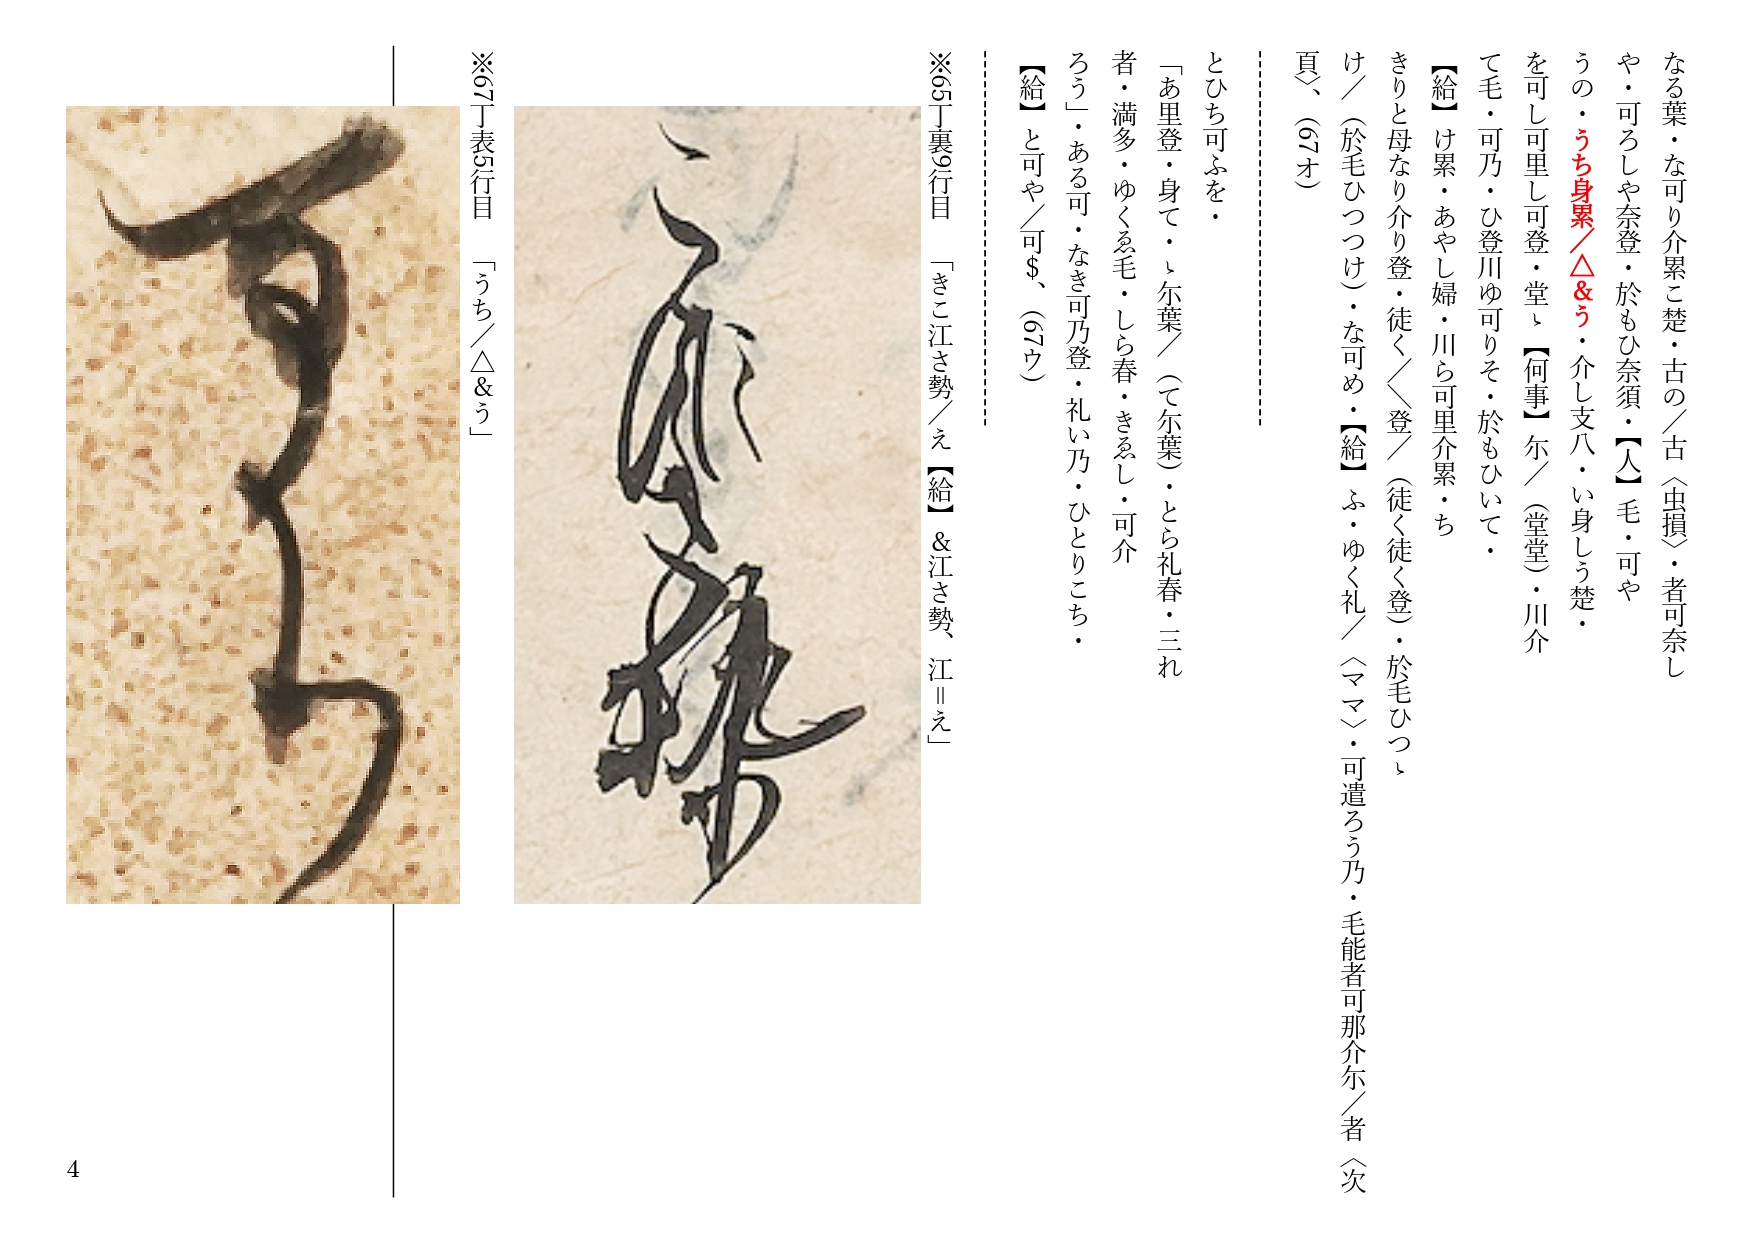 なる葉・な可り介累こ楚・古の／古〈虫損〉・者可奈し
や・可ろしや奈登・於もひ奈須・【人】毛・可や
うの・うち身累／△＆う・介し支八・い身しう楚・
を可し可里し可登・堂ゝ【何事】尓／（堂堂）・川介
て毛・可乃・ひ登川ゆ可りそ・於もひいて・
【給】け累・あやし婦・川ら可里介累・ち
きりと母なり介り登・徒く／＼登／（徒く徒く登）・於毛ひつゝ
け／（於毛ひつつけ）・な可め・【給】ふ・ゆく礼／〈ママ〉・可遣ろう乃・毛能者可那介尓／者〈次
頁〉、（67オ）
とひち可ふを・
「あ里登・身て・ゝ尓葉／（て尓葉）・とら礼春・三れ
者・満多・ゆくゑ毛・しら春・きゑし・可介
ろう」・ある可・なき可乃登・礼い乃・ひとりこち・
【給】と可や／可＄、（67ウ）
※65丁裏9行目　「きこ江さ勢／え【給】＆江さ勢、江＝え」
※67丁表5行目　「うち／△＆う」
4